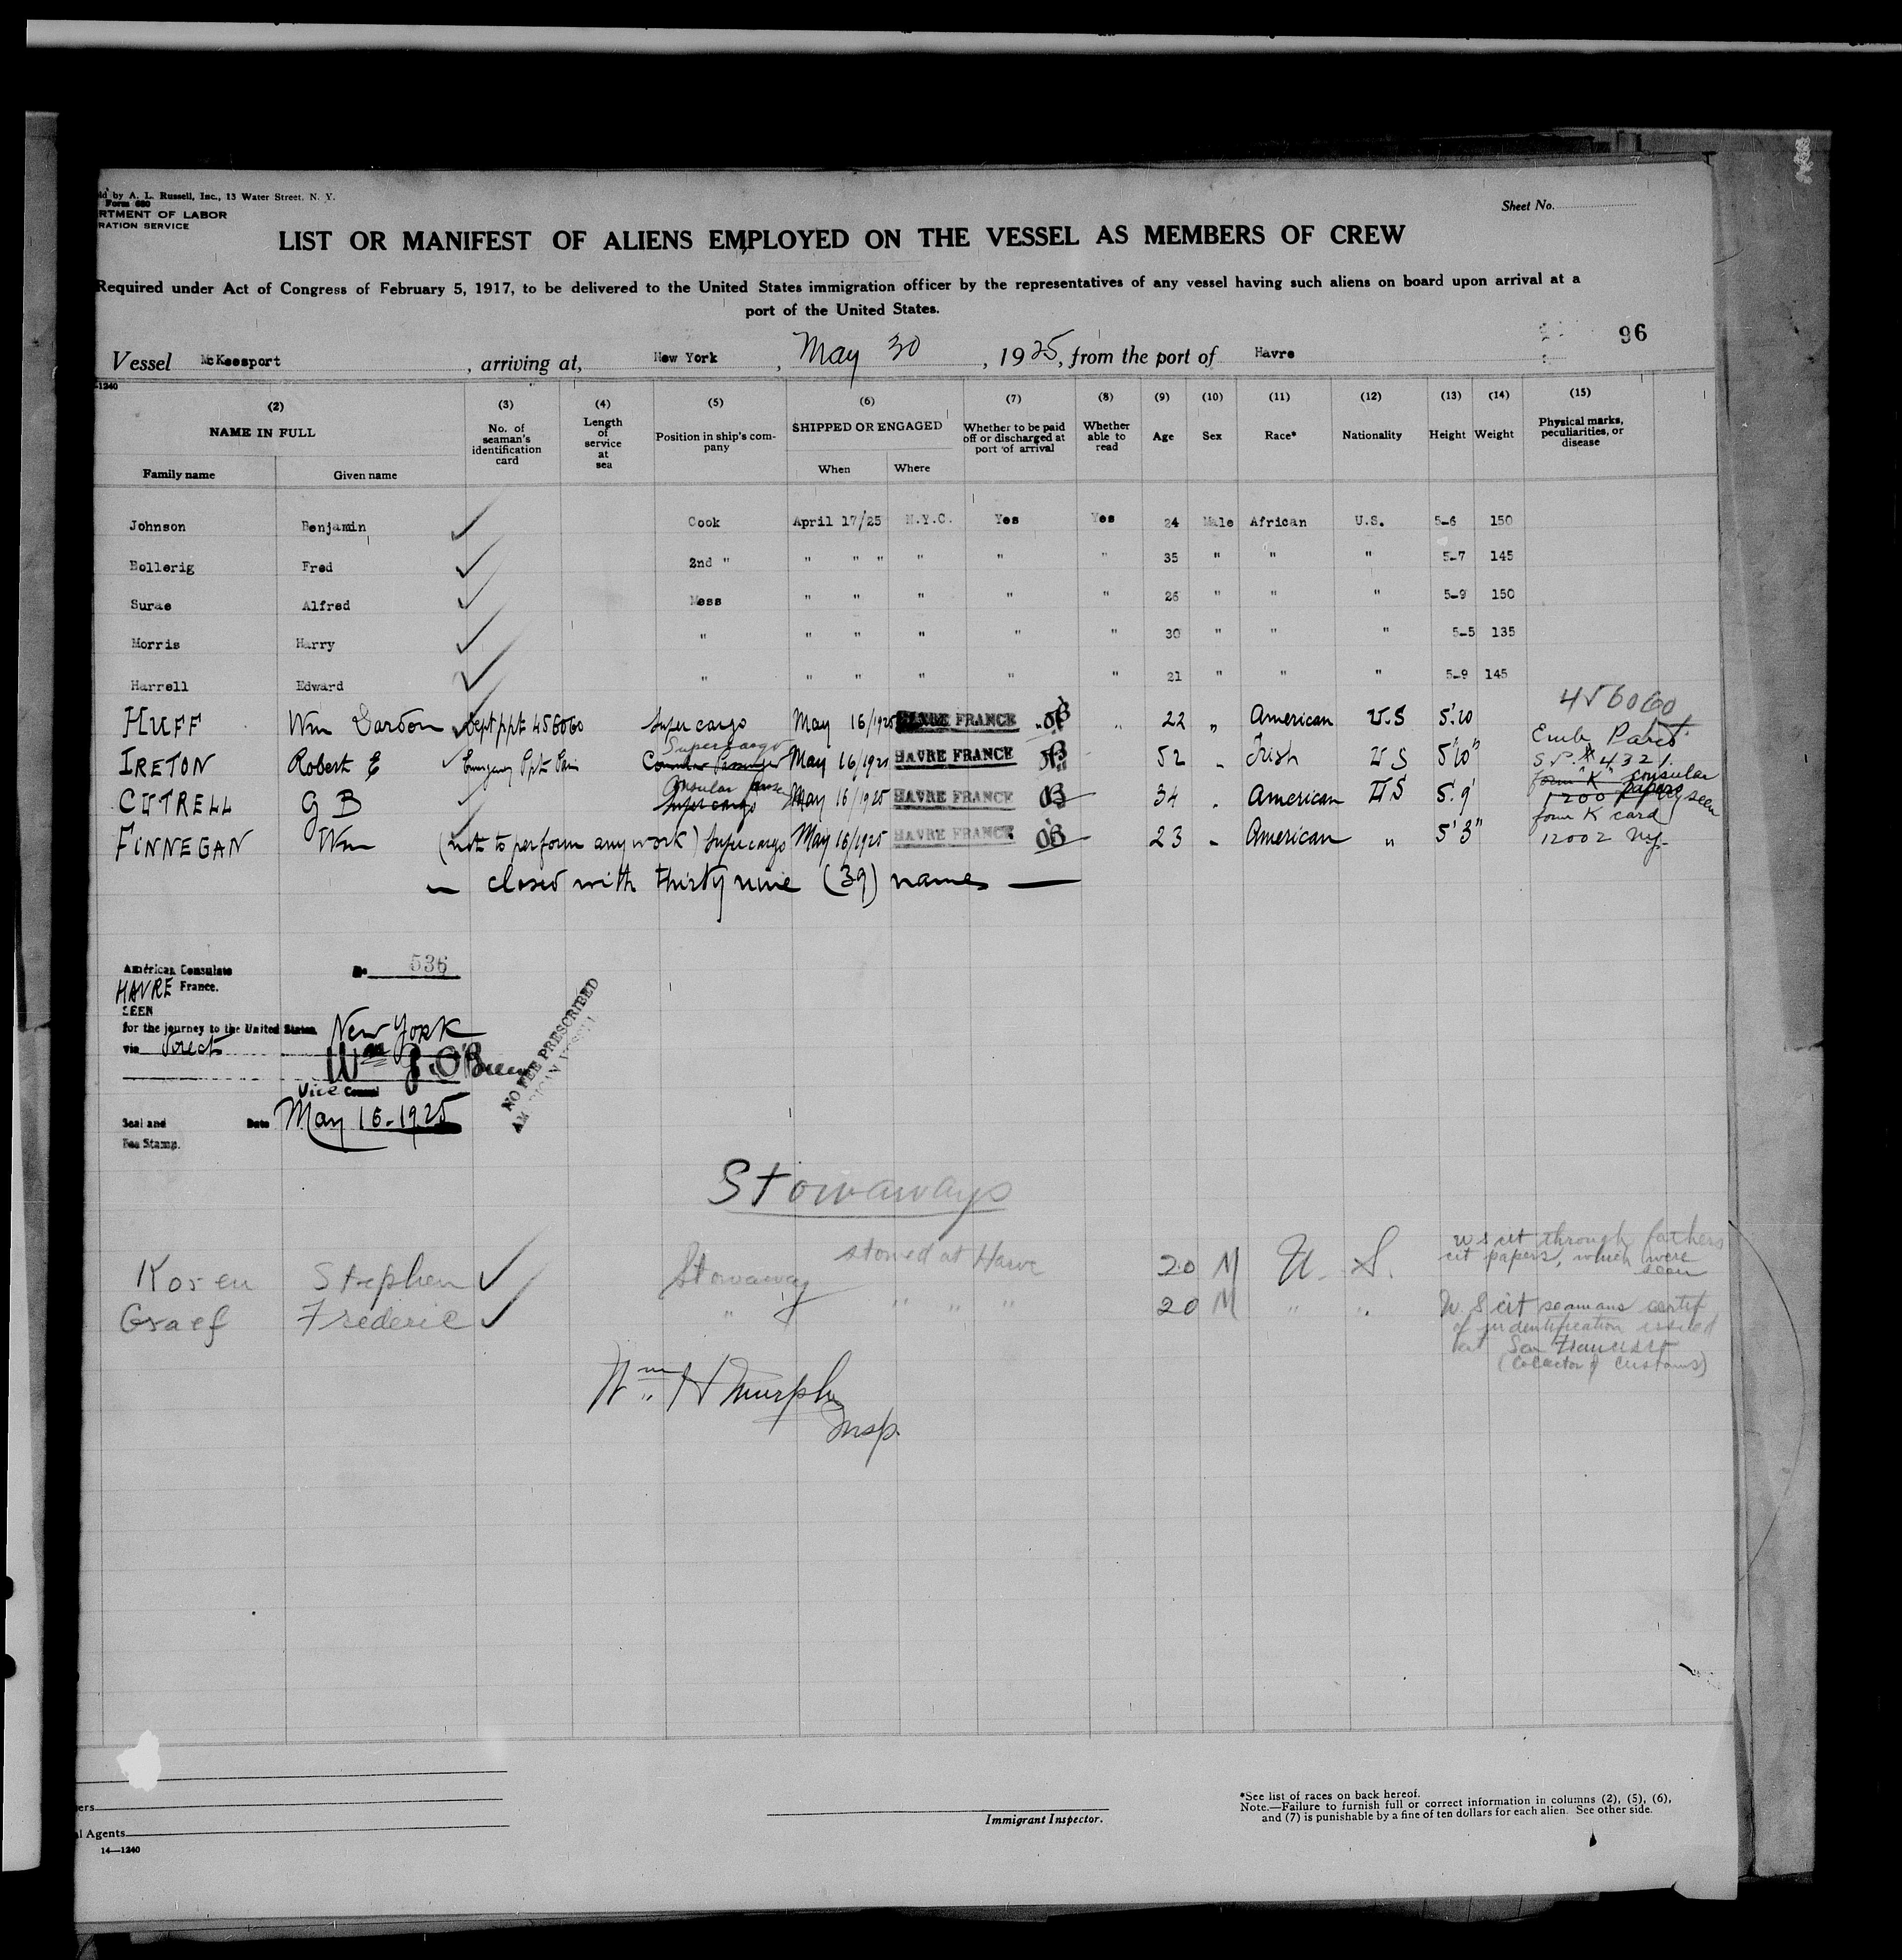 ld by A. L. Russell, Inc., 13 Water Street, N. Y.
Form 680
RTMENT OF LABOR
RATION SERVICE
Sheet No.
LIST OR MANIFEST OF ALIENS EMPLOYED ON THE VESSEL AS MEMBERS OF CREW
Required under Act of Congress of February 5, 1917, to be delivered to the United States immigration officer by the representatives of any vessel having such aliens on board upon arrival at a
port of the United States.
96
Vessel McKeesport , arriving at, New York , May 30 , 1925, from the port of Havre
1240
(2) NAME IN FULL Family name Given name
(3) No. of seaman's identification card
(4) Length of service at sea
(5) Position in ship's com-pany
(6) SHIPPED OR ENGAGED When Where
(7) Whether to be paid off or discharged at port of arrival
(8) Whether able to read
(9) Age
(10) Sex
(11) Race*
(12) Nationality
(13) Height
(14) Weight
(15) Physical marks, peculiarities, or disease
Johnson Benjamin ✓ Cook April 17/25 N.Y.C. Yes Yes 24 Male African U.S. 5-6 150
Bollerig Fred ✓ 2nd " " " " " " " 35 " " " 5-7 145
Surae Alfred ✓ Mess " " " " " 26 " " " 5-9 150
Morris Harry ✓ " " " " " " 30 " " " 5-5 135
Harrell Edward ✓ " " " " " " 21 " " " 5-9 145
456060
HUFF Wm ✓ Dept ppt 456060 Super cargo May 16/1925 HAVRE FRANCE OB " 22 " American U.S 5'.10
Supercargo
Emb Paris
IRETON Robert E ✓ Emergency Ppt Paris Consular Passenger May 16/1925 HAVRE FRANCE OB 52 " Irish US 5'10"
S.P. # 4321.
Consular
form "K" consular papers
CUTRELL G B ✓ Super cargo May 16/1925 HAVRE FRANCE OB 34 " American US 5'.9'
seen
form K card
FINNEGAN Wm (not to perform any work) Supercargo May 16/1925 HAVRE FRANCE OB 23 " American " 5'3"
12002 Ny.
— closed with thirty nine (39) names —
American Consulate No 536
HAVRE France.
SEEN
for the journey to the United States, New York
via direct
Wm J. O'Brien
Vice Consul
Seal and Date May 16-1925
Fee Stamp.
NO FEE PRESCRIBED
AMERICAN VESSEL
Stowaways
U S cit through fathers
cit papers, which were
seen
Koren Stephen ✓ Stowaway stowed at Havre 20 M U. S.
Graef Frederic ✓ " " " " 20 M " "
U. S cit seamans certif
of indentification issued
at San Francisco
(Collector of Customs)
Wm H Murphy
Insp.
ers
l Agents
14—1240
Immigrant Inspector.
*See list of races on back hereof.
Note.—Failure to furnish full or correct information in columns (2), (5), (6),
and (7) is punishable by a fine of ten dollars for each alien. See other side.